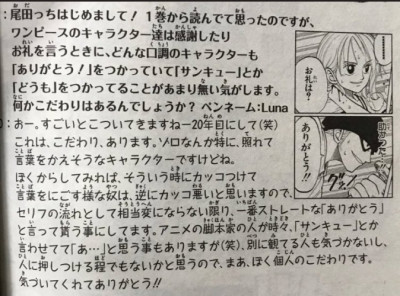 : 尾田っちはじめまして！１巻から読んでて思ったのですが、
ワンピースのキャラクター達は感謝したり
お礼を言うときに、どんな口調のキャラクターも
「ありがとう！」をつかっていて「サンキュー」とか
「どうも」をつかってることがあまり無い気がします。
何かこだわりはあるんでしょうか？ ペンネーム:Luna
: おー。すごいとこついてきますねー20年目にして(笑)
これは、こだわり、あります。ゾロなんか特に、照れて
言葉をかえそうなキャラクターですけどね。
ぼくからしてみれば、そういう時にカッコつけて
言葉をにごす様な奴は、逆にカッコ悪いと思いますので、
セリフの流れとして相当変にならない限り、一番ストレートな「ありがとう」
と言って貰う事にしてます。アニメの脚本家の人が時々、「サンキュー」とか
言わせてて「あ…」と思う事もありますが(笑)、別に観てる人も気づかないし、
人に押しつける程でもないかと思うので、まあ、ぼく個人のこだわりです。
気づいてくれてありがとう!!
お礼は？
助かった…
ありがとう!!